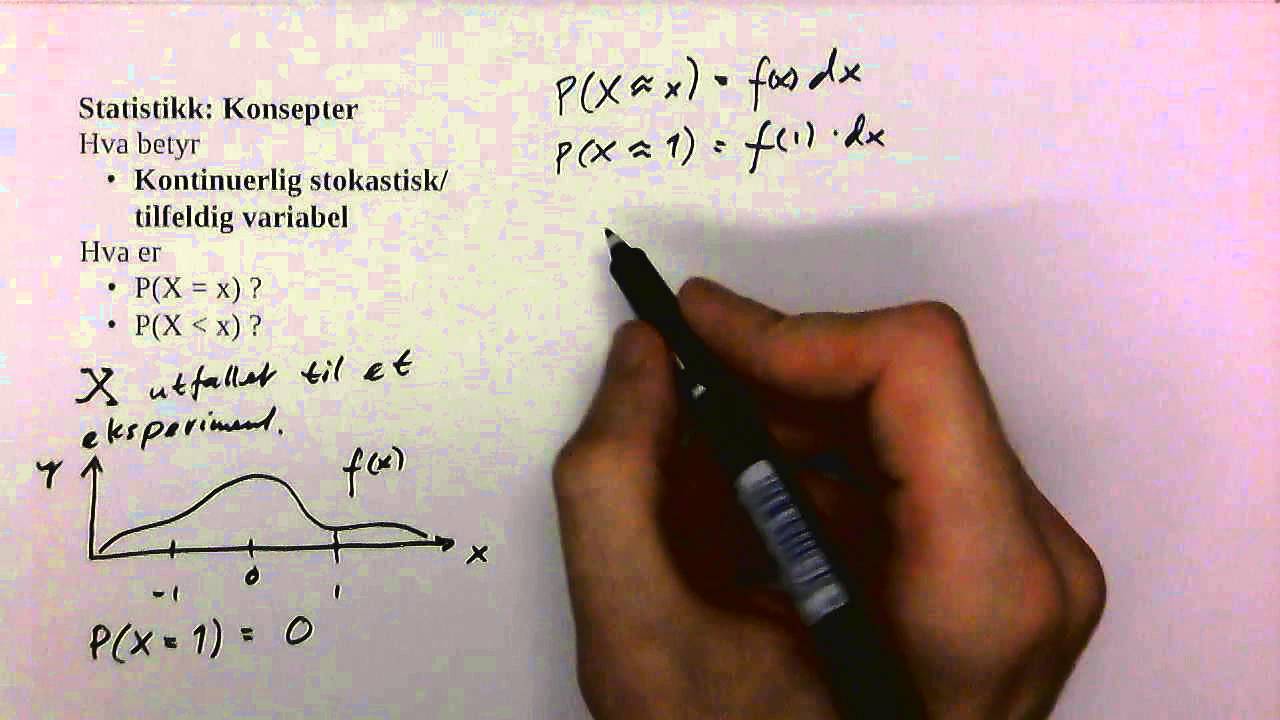 Statistikk: Konsepter
Hva betyr
• Kontinuerlig stokastisk/
tilfeldig variabel
Hva er
• P(X = x) ?
• P(X < x) ?
X utfallet til et
eksperiment.
y
f(x)
x
-1 0 1
P(X = 1) = 0
P(X ≈ x) = f(x) dx
P(X ≈ 1) = f(1) · dx